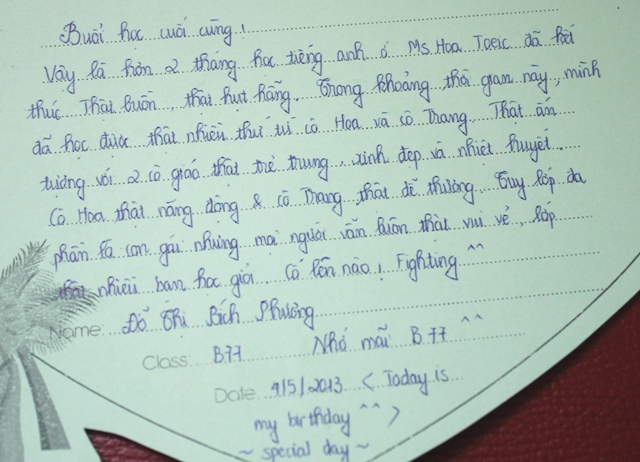 Buổi học cuối cùng!
Vậy là hơn 2 tháng học tiếng anh ở Ms.Hoa Toeic đã kết
thúc. Thật buồn, thật hụt hẫng. Trong khoảng thời gian này, mình
đã học được thật nhiều thứ từ cô Hoa và cô Trang. Thật ấn
tượng với 2 cô giáo thật trẻ trung, xinh đẹp và nhiệt huyết.
Cô Hoa thật năng động & cô Trang thật dễ thương. Tuy lớp đa
phần là con gái nhưng mọi người vẫn luôn thật vui vẻ, lớp
thật nhiều bạn học giỏi. Cố lên nào! Fighting ^^
Name: Đỗ Thị Bích Phương
Class: B77 Nhớ mãi B77 ^^
Date: 9/5/2013 < Today is
my birthday ^^ >
~ special day ~